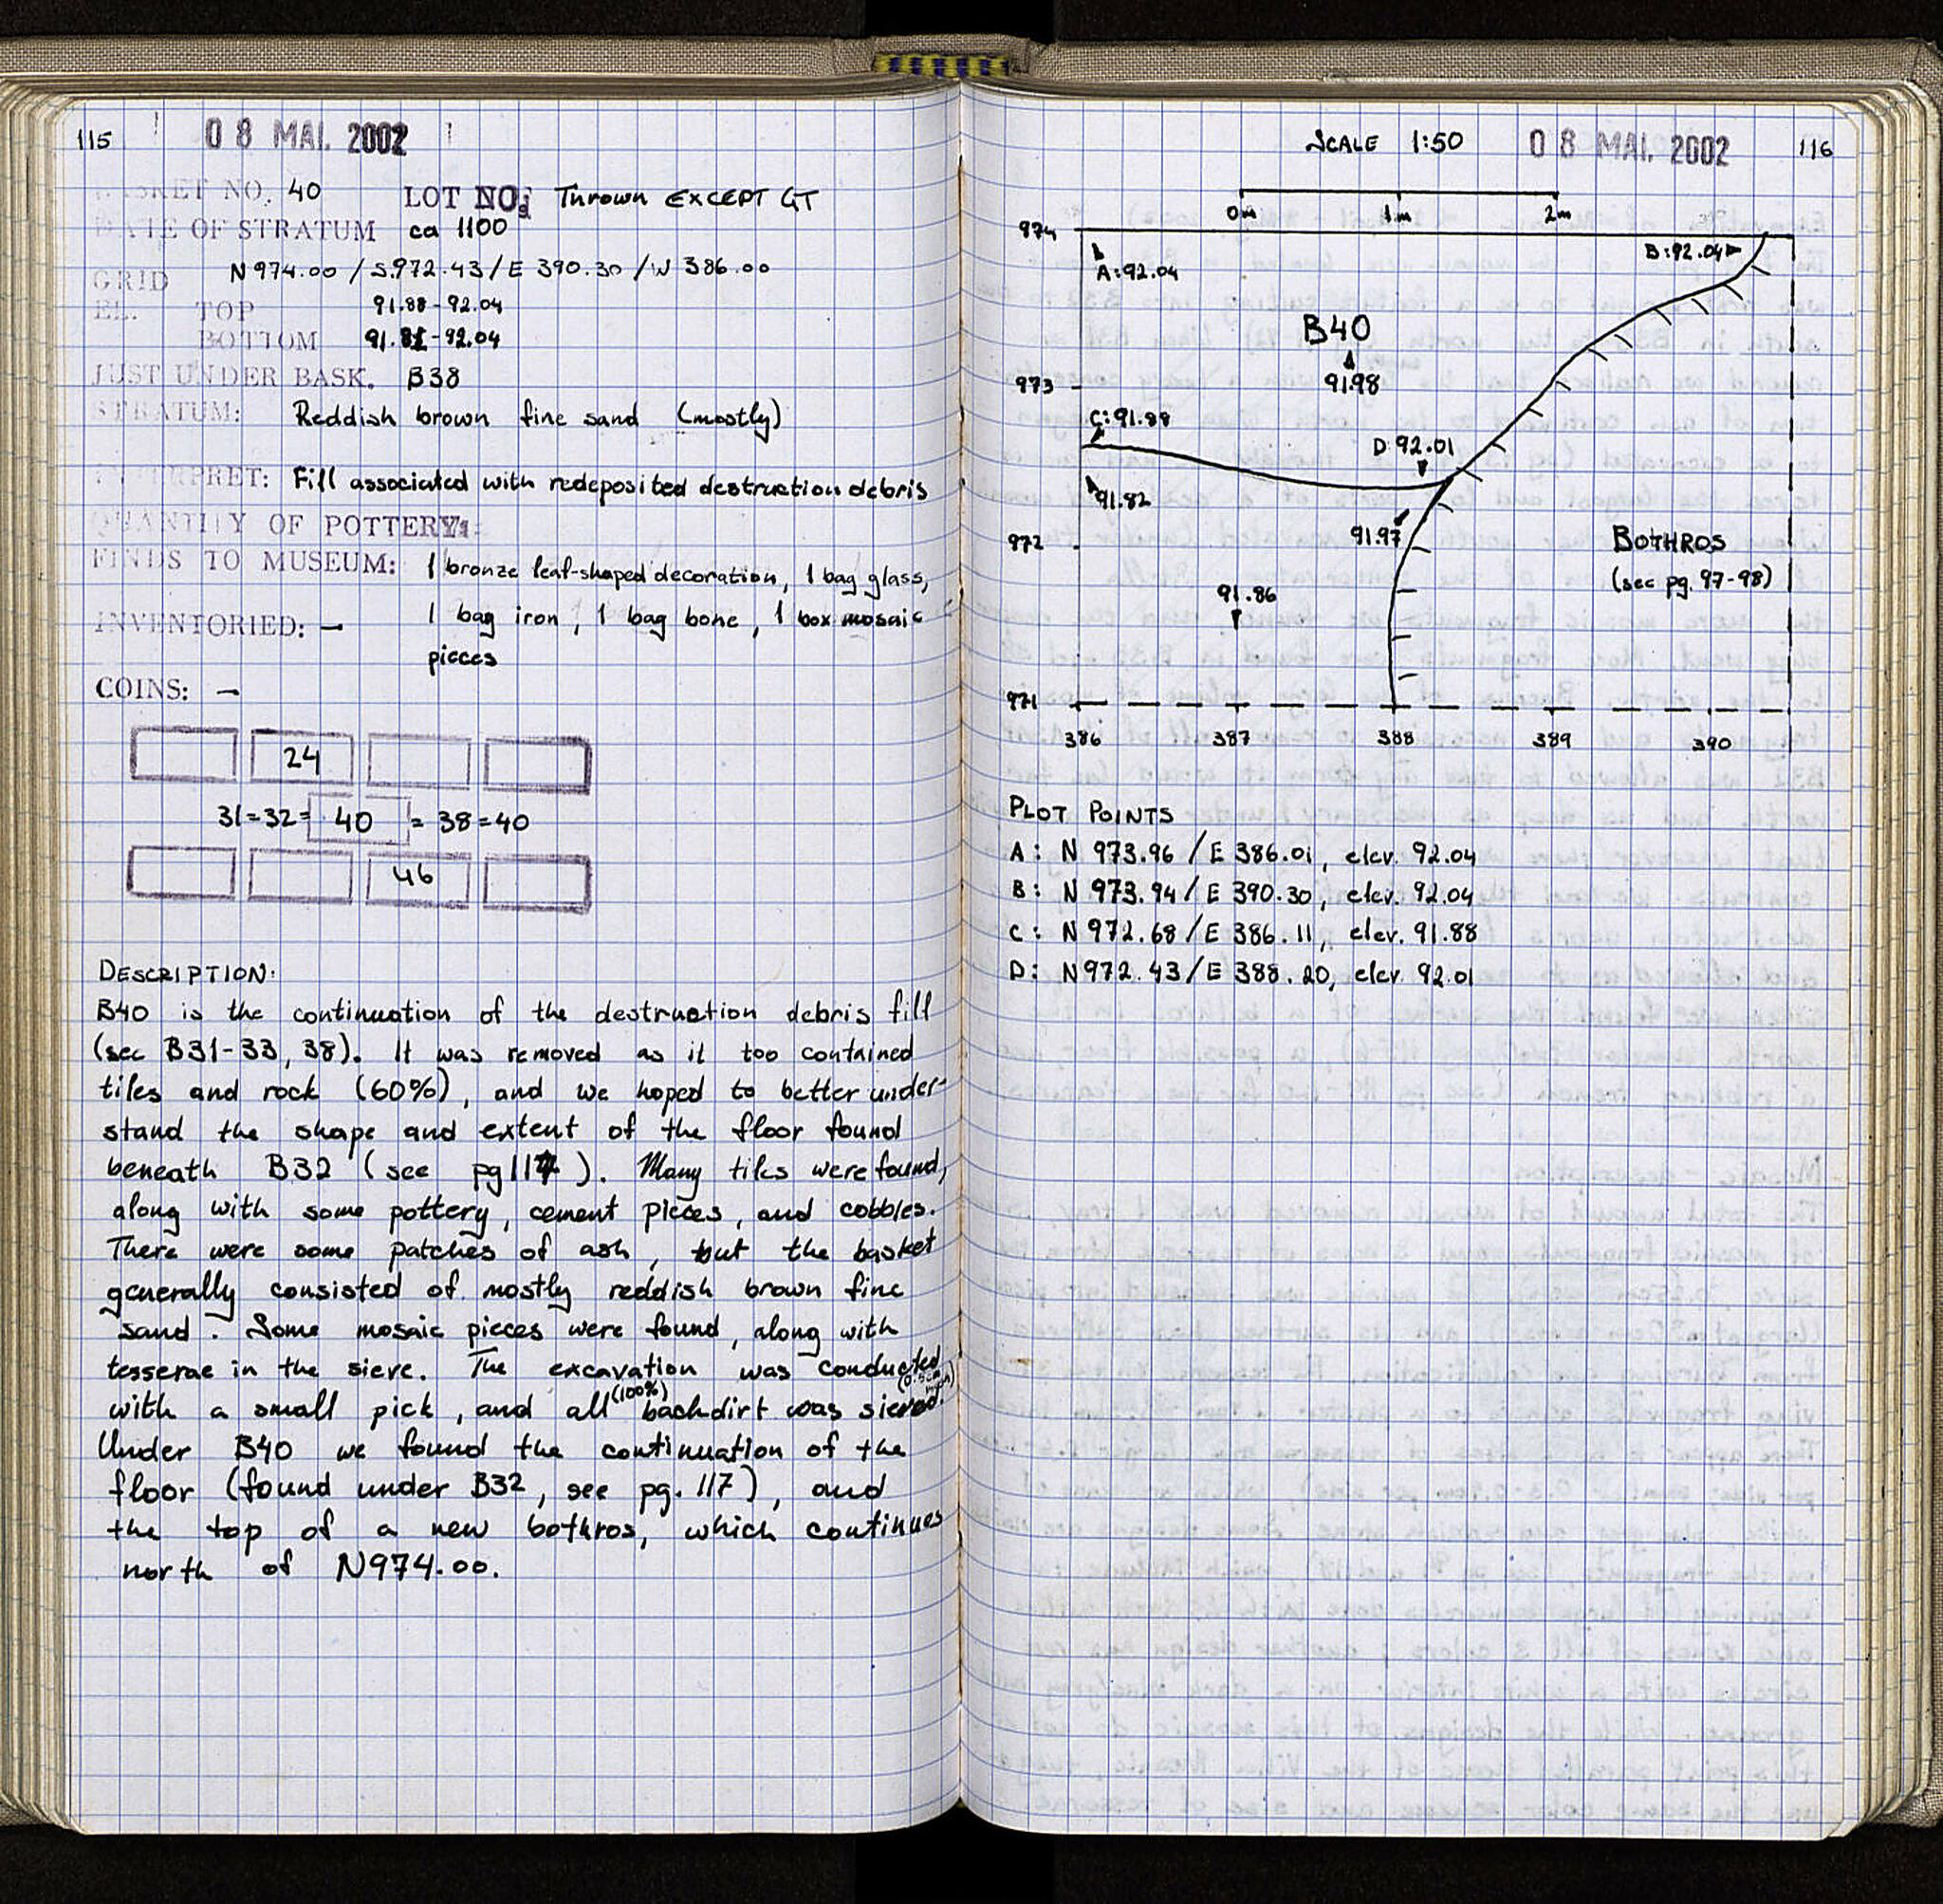 115
08 MAI. 2002
BASKET NO. 40 LOT NO: Thrown EXCEPT GT
DATE OF STRATUM ca 1100
GRID N 974.00 / S.972.43 / E 390.30 / W 386.00
EL. TOP 91.88-92.04
BOTTOM 91.82-92.04
JUST UNDER BASK. B38
STRATUM: Reddish brown fine sand (mostly)
INTERPRET: Fill associated with redeposited destruction debris
QUANTITY OF POTTERY:
FINDS TO MUSEUM: 1 bronze leaf-shaped decoration, 1 bag glass,
1 bag iron, 1 bag bone, 1 box mosaic
pieces
INVENTORIED: —
COINS: —
24
31=32= 40 = 38=40
46
DESCRIPTION:
B40 is the continuation of the destruction debris fill
(see B31-33, 38). It was removed as it too contained
tiles and rock (60%), and we hoped to better under-
stand the shape and extent of the floor found
beneath B32 (see pg 117). Many tiles were found,
along with some pottery, cement pieces, and cobbles.
There were some patches of ash, but the basket
generally consisted of mostly reddish brown fine
sand. Some mosaic pieces were found, along with
tesserae in the sieve. The excavation was conducted
with a small pick, and all (100%) backdirt was sieved.
Under B40 we found the continuation of the
floor (found under B32, see pg. 117), and
the top of a new bothros, which continues
north of N974.00.
SCALE 1:50
08 MAI. 2002
116
0m 1m 2m
974
A:92.04
B:92.04
B40
91.98
973
C:91.88
D 92.01
91.82
91.97
972
BOTHROS
(see pg. 97-98)
91.86
971
386 387 388 389 390
PLOT POINTS
A: N 973.96 / E 386.01, elev. 92.04
B: N 973.94 / E 390.30, elev. 92.04
C: N 972.68 / E 386.11, elev. 91.88
D: N 972.43 / E 388.20, elev. 92.01